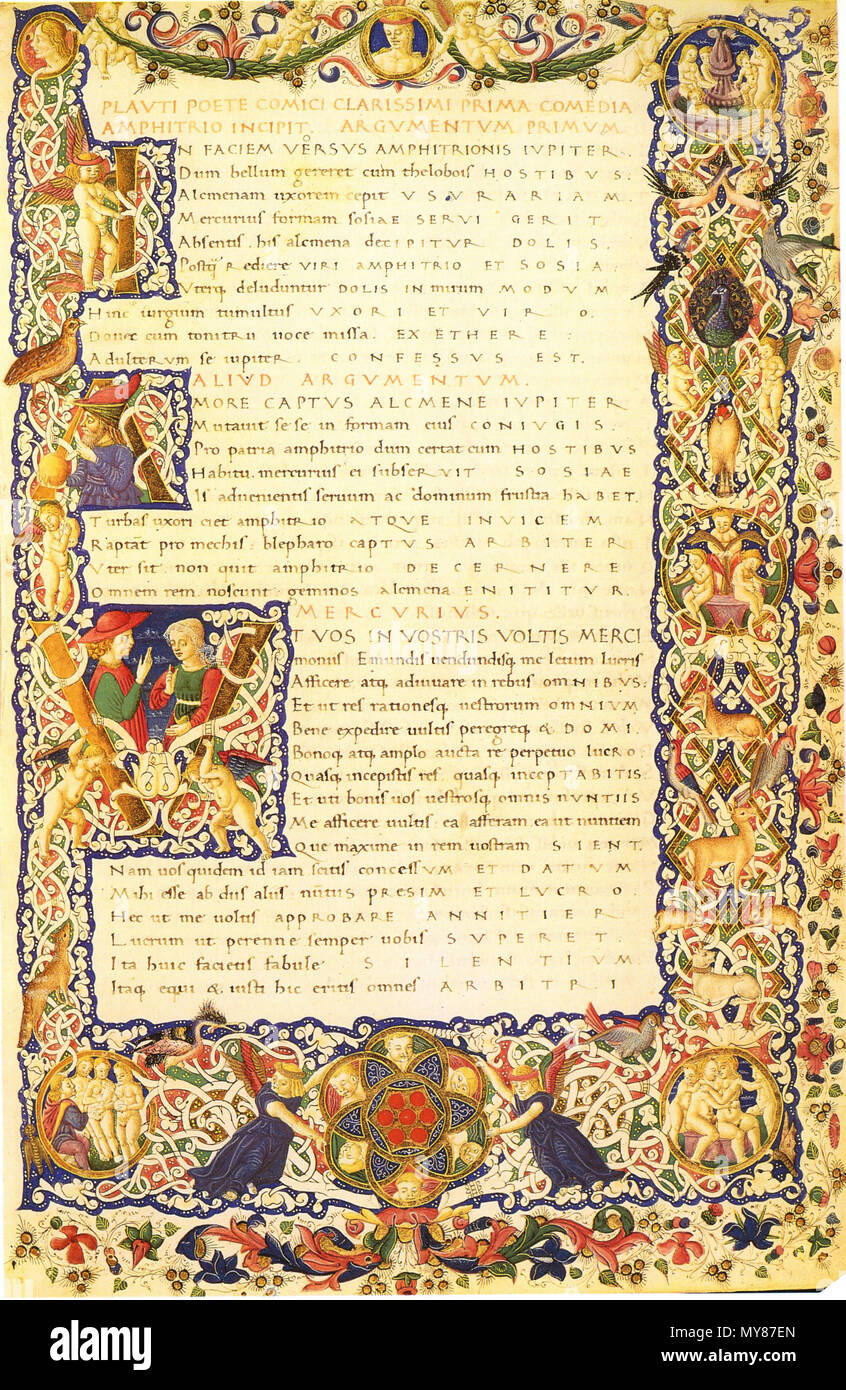 PLAVTI POETE COMICI CLARISSIMI PRIMA COMEDIA
AMPHITRIO INCIPIT. ARGVMENTVM PRIMVM
IN FACIEM VERSVS AMPHITRIONIS IVPITER.
Dum bellum gereret cum thelobois HOSTIBVS.
Alcmenam uxorem cepit VSVRARIAM.
Mercurius formam sosiae SERVI GERIT
Absentis. his alcmena decIPITVR DOLIS.
Postq̃ rediere VIRI AMPHITRIO ET SOSIA.
Vterq deluduntur DOLIS IN mirum MODVM
Hinc iurgium tumultus VXORI ET VIRO.
Donec cum tonitru uoce missa. EX ETHERE:
Adulterum se iupiter. CONFESSVS EST.
ALIVD ARGVMENTVM.
AMORE CAPTVS ALCMENE IVPITER
Mutauit se se in formam eius CONIVGIS.
Pro patria amphitrio dum certat cum HOSTIBVS
Habitu. mercurius ei subserVIT SOSIAE
Is aduenientis seruum ac dominum frustra HABET.
Turbas uxori ciet amphitrio ATQVE INVICEM
Raptãt pro mechis: blepharo CAPTVS ARBITER
Vter sit non quit amphitrio DECERNERE
Omnem rem noscunt: geminos alcmena ENITITVR.
MERCVRIVS.
VT VOS IN VOSTRIS VOLTIS MERCI
monus Emundis uendundisq me letum lucris
Afficere atq adiuuare in rebus omNIBVS:
Et ut res rationesq uestrorum OMNIVM
Bene expedire uultis peregreq & DOMI.
Bonoq atq amplo aucta re perpetuo LVCRO:
Quasq incepistis res quasq incepTABITIS:
Et uti bonis uos uestrosq omnis NVNTIIS
Me afficere uultis ea afferam ea ut nuntiem
Que maxime in rem uostram SIENT.
Nam uos quidem id iam scitis concessVM ET DATVM
Mihi esse ab diis aliis nũtiis PRESIM ET LVCRO.
Hec ut me uoltis APPROBARE ANNITIER
Lucrum ut perenne semper uobis SVPERET.
Ita huic facietis fabule SILENTIVM.
Itaq equi & iusti hic eritis omnes ARBITRI
alamy
alamy
Image ID: MY87EN
www.alamy.com